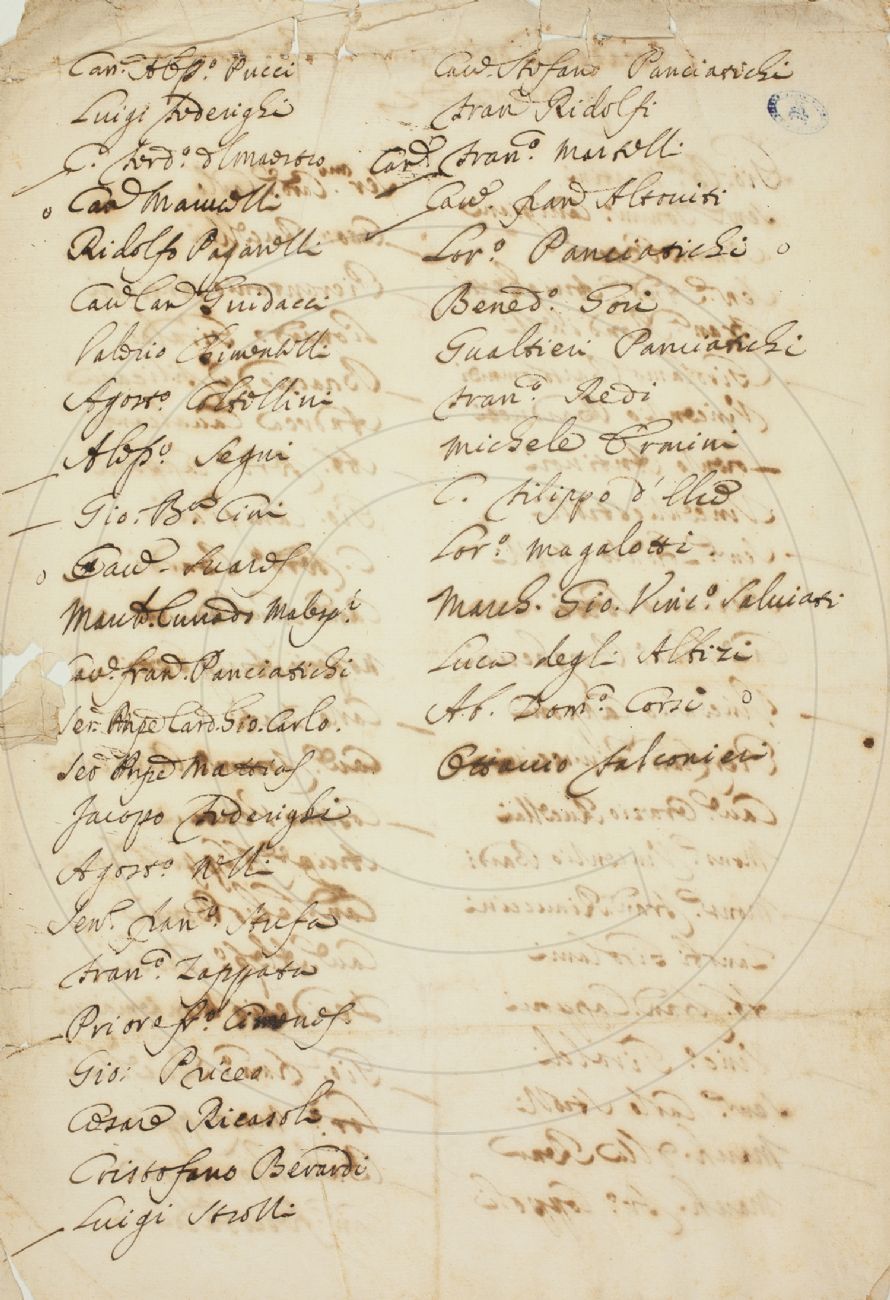 Can.co Aless.o Pucci
Luigi Federighi
C. Ferd.o d'l Maestro
Cav.e Mannelli
Ridolfo Paganelli
Cav.e Guidacci
Valerio Chimentelli
Agost.o Coltellini
Aless.o Segni
Gio. B.a Cini
Cav.e Suares
March. Currado Malesp.i
Cav.e Fran.o Panciatichi
Ser. Pnpe Card. Gio. Carlo.
Ser. Pnpe Mattias
Jacopo Federighi
Agost.o Nelli
Sen.e Fran.o Stufa
Fran.o Zappata
Priore Fr.o Cimenes.
Gio: Pricea
Cesare Ricasoli
Cristofano Berardi
Luigi Strozzi
Cav.e Stefano Panciatichi
Fran.o Ridolfi
Cav.e Fran.o Martelli
Cav.e Fran.o Altoviti
Lor.o Panciatichi
Bened.o Gori
Gualtieri Panciatichi
Fran.o Redi
Michele Ermini
C. Filippo d'Elci
Lor.o Magalotti.
March. Gio. Vinc.o Salviati
Luca degli Albizi
Ab. Dom.o Corsi
Ottavio Falconieri